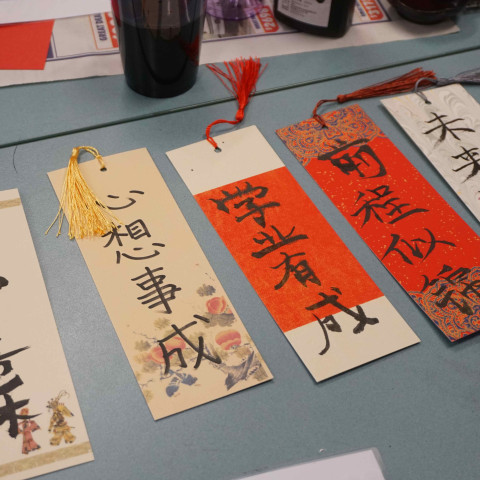 心想事成
学业有成
前程似锦
未来